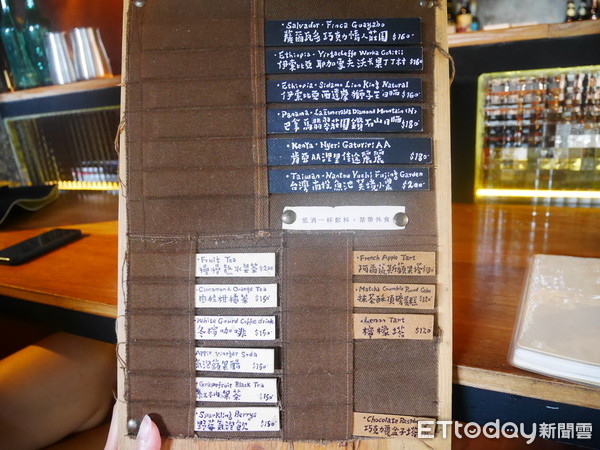 · Salvador · Finca Guayabo
薩爾瓦多 巧克力情人莊園 $160
· Ethiopia · Yirgacheffe Worka
伊索比亞 耶加雪夫 沃卡 果丁丁村 $160
· Ethiopia · Sidamo Lion King Natural
伊索比亞 西達摩 獅子王 日曬 $160
· Panama · La Esmeralda Diamond Mountain
巴拿馬 翡翠莊園 鑽石山 日曬 $180
· Kenya · Nyeri Gaturiri AA
肯亞AA 涅里 $180
· Taiwan · Nantou Yuchi Fujing Garden
台灣 南投 魚池 $200
低消一杯飲料，禁帶外食
· Fruit Tea
水果茶 $200
· Cinnamon & Orange Tea
肉桂柑橘茶 $150
· White Gourd Coffee drink
冬檸咖啡 $150
Apple Vinegar Soda
蘋果醋 $150
· Grapefruit Black Tea
果茶 $150
· Sparkling Berrys
野莓氣泡飲 $150
· French Apple Tart
阿爾薩斯蘋果塔
· Matcha Crumble Pound Cake
抹茶酥頂磅蛋糕 $120
· Lemon Tart
檸檬塔 $120
Chocolate
巧克力覆盆子塔
ETtoday新聞雲